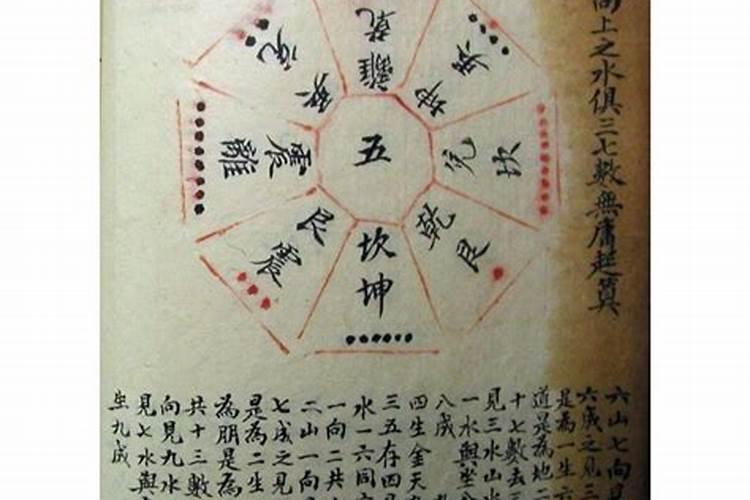 向上之水俱三七數無庸起算
乾離
巽坤
兌坎
乾艮
坎坤
艮震
震離
兌巽
五
六山七向見
六成之見三
是為一生六
道是為地
十七數去三
見三水山
一水與坐八
八成
四生金天
三五存四
水一六同
一向二共
二山一向
七成之見
是為二生
為朋是為
共十三數
向見九水
見七水與
坐九成